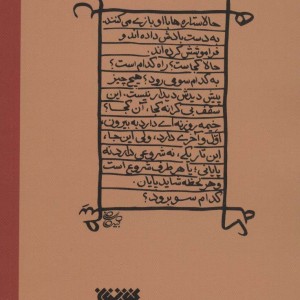 حالا ستاره ها با او بازی می کنند
به دست بادش داده اند و
فراموشش کرده اند.
حالا کجاست؟ راه کدام است؟
به کدام سو می رود؟ هیچ چیز
پیش دیدش دیدار نیست. این
سقف بی کرانه کجا، آن کجا؟
خیمه روزنه ای دارد به بیرون،
اول و آخری دارد، ولی این جا،
این تاریکی، نه شروعی دارد نه
پایانی، یا هر طرف شروع است
و هر لحظه شاید پایان.
کدام سو برود؟